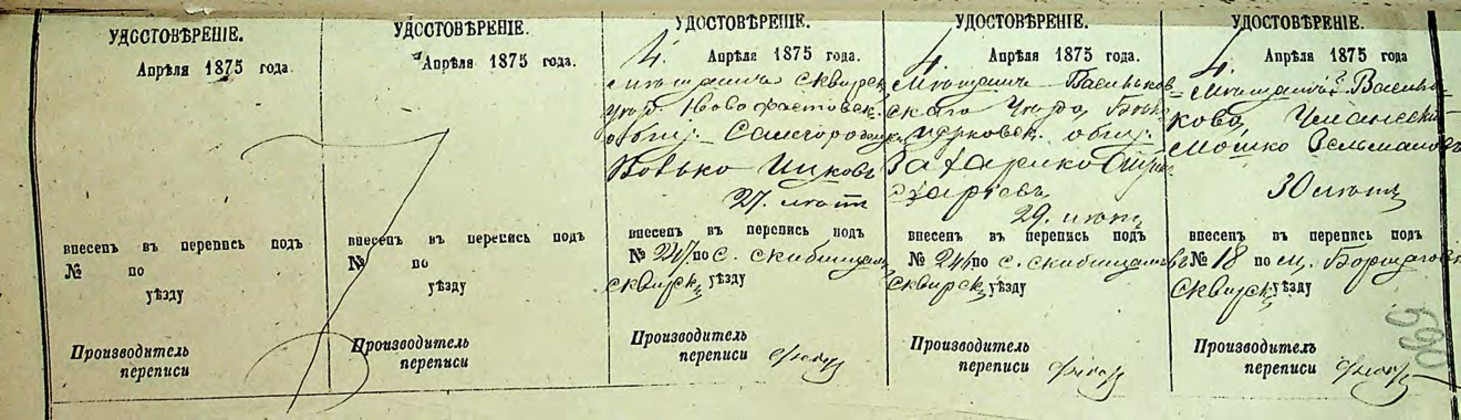 УДОСТОВѢРЕНІЕ.
Апрѣля 1875 года.
внесенъ въ перепись подъ
№ по
уѣзду
Производитель
переписи
УДОСТОВѢРЕНІЕ.
Апрѣля 1875 года.
внесенъ въ перепись подъ
№ по
уѣзду
Производитель
переписи
УДОСТОВѢРЕНІЕ.
4. Апрѣля 1875 года.
мѣщанинъ Сквирск.
уѣзд. Новофастовск.
общ. Самогородецкій
27. лѣтъ
внесенъ въ перепись подъ
№ по с. Скибинцамъ
Сквирск. уѣзду
Производитель
переписи
УДОСТОВѢРЕНІЕ.
4. Апрѣля 1875 года.
мѣщанинъ Васильков
скаго Уѣзда, Бѣло
церковск. общ.
29. лѣтъ
внесенъ въ перепись подъ
№ по с. Скибинцамъ
Сквирск. уѣзду
Производитель
переписи
УДОСТОВѢРЕНІЕ.
4. Апрѣля 1875 года.
мѣщанинъ Г. Василь
кова,
Мошко Зельмановъ
30 лѣтъ
внесенъ въ перепись подъ
№ 18 по м. Борщаговк
Сквирск. уѣзду
Производитель
переписи
690